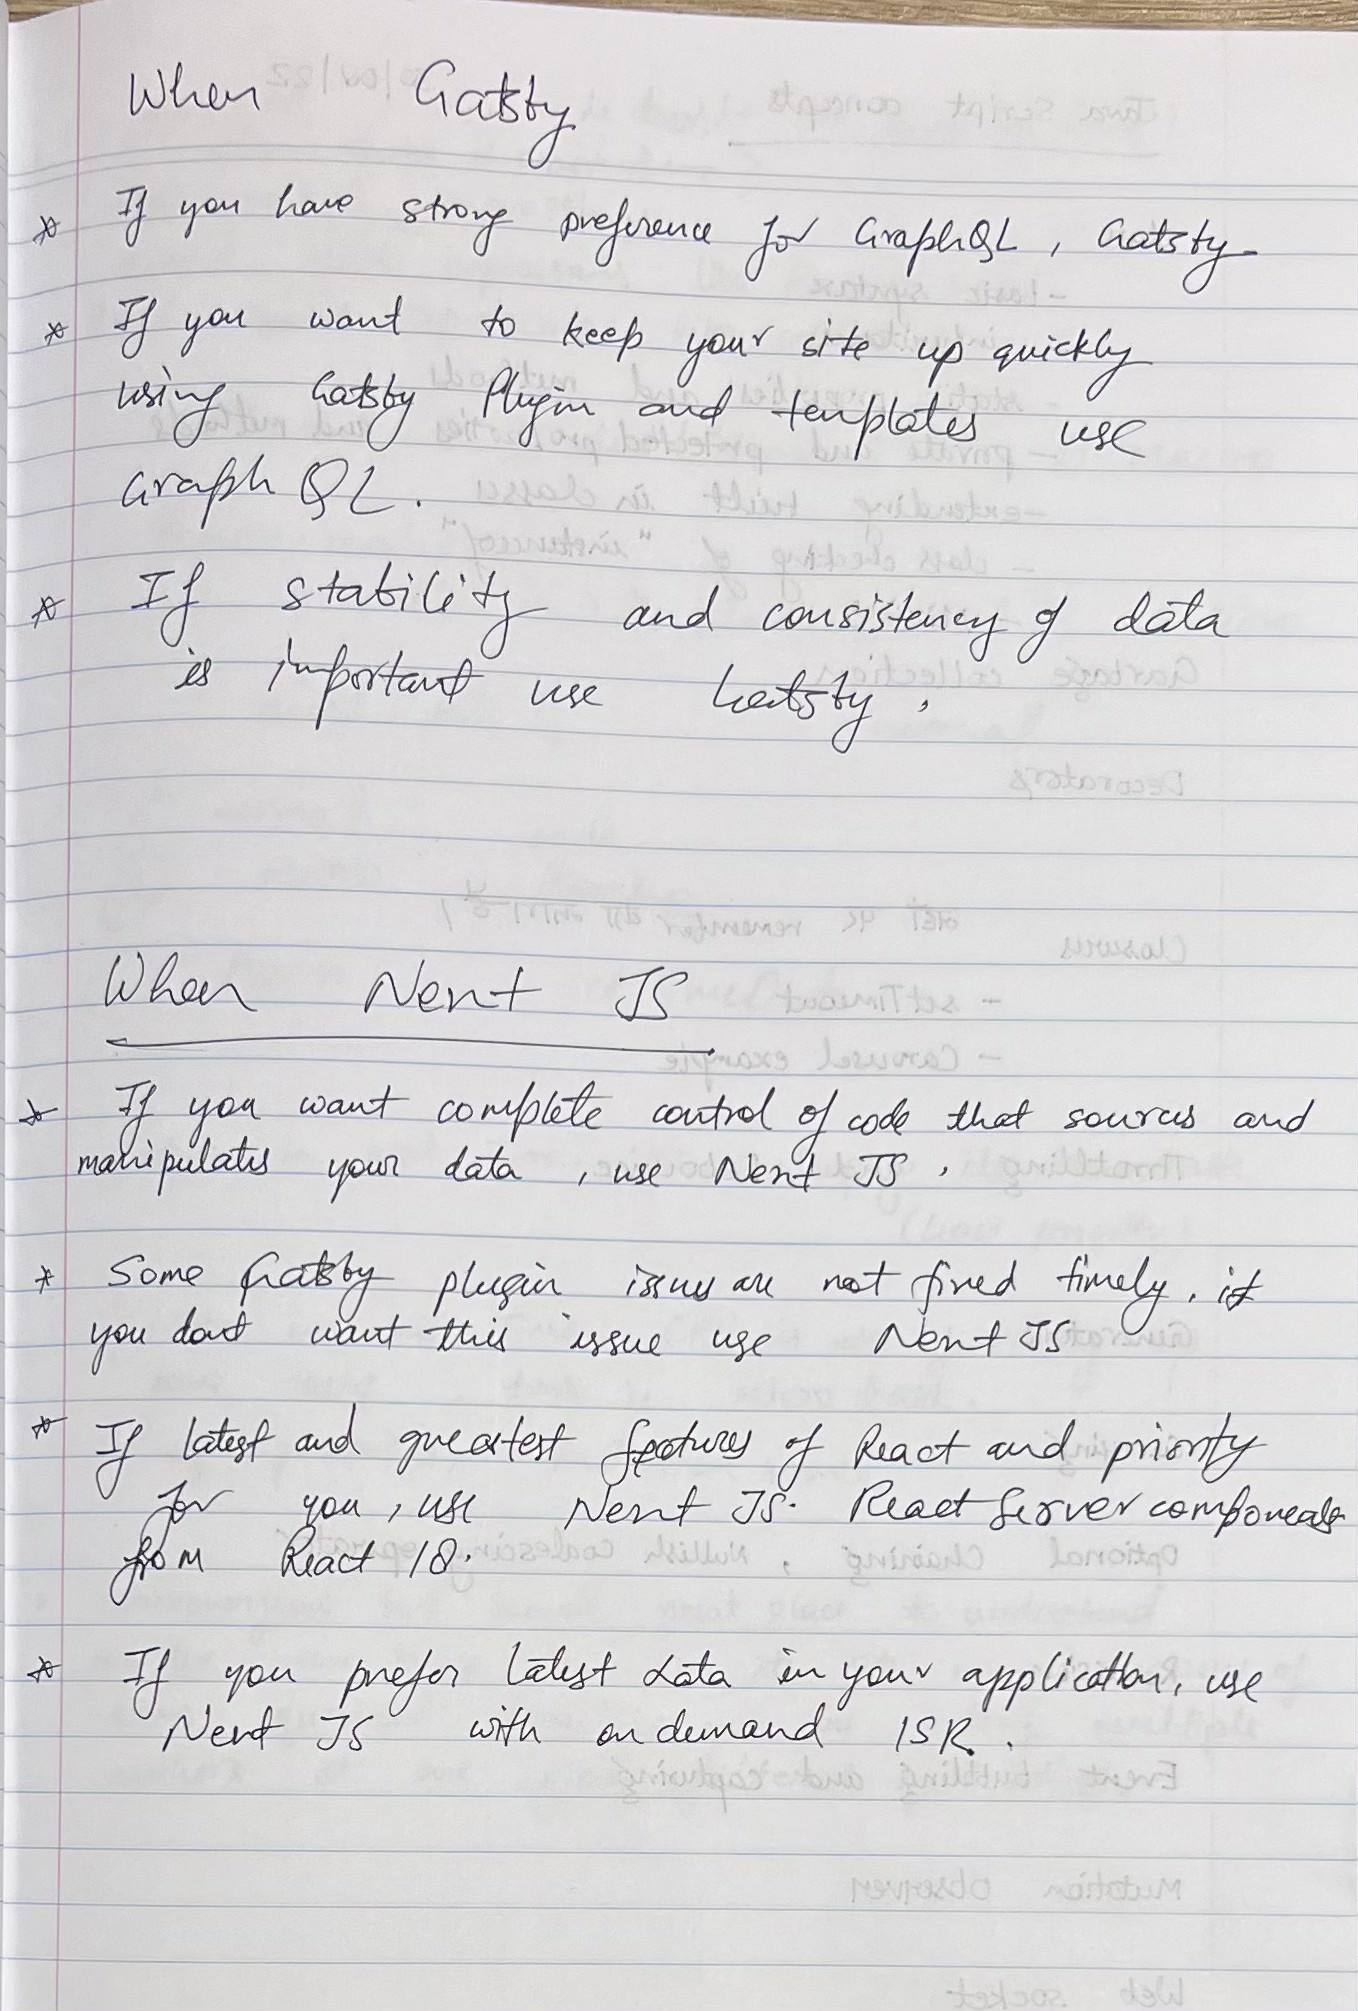 When Gatsby
* If you have strong preference for GraphQL, Gatsby
* If you want to keep your site up quickly
using Gatsby Plugin and templates use
GraphQL.
* If stability and consistency of data
is important use Gatsby.
When Next JS
* If you want complete control of code that sources and
manipulates your data, use Next JS.
* Some Gatsby plugin issues are not fixed timely, if
you dont want this issue use Next JS
* If latest and greatest features of React and priority
for you, use Next JS. React Server components
from React 18.
* If you prefer latest data in your application, use
Next JS with on demand ISR.